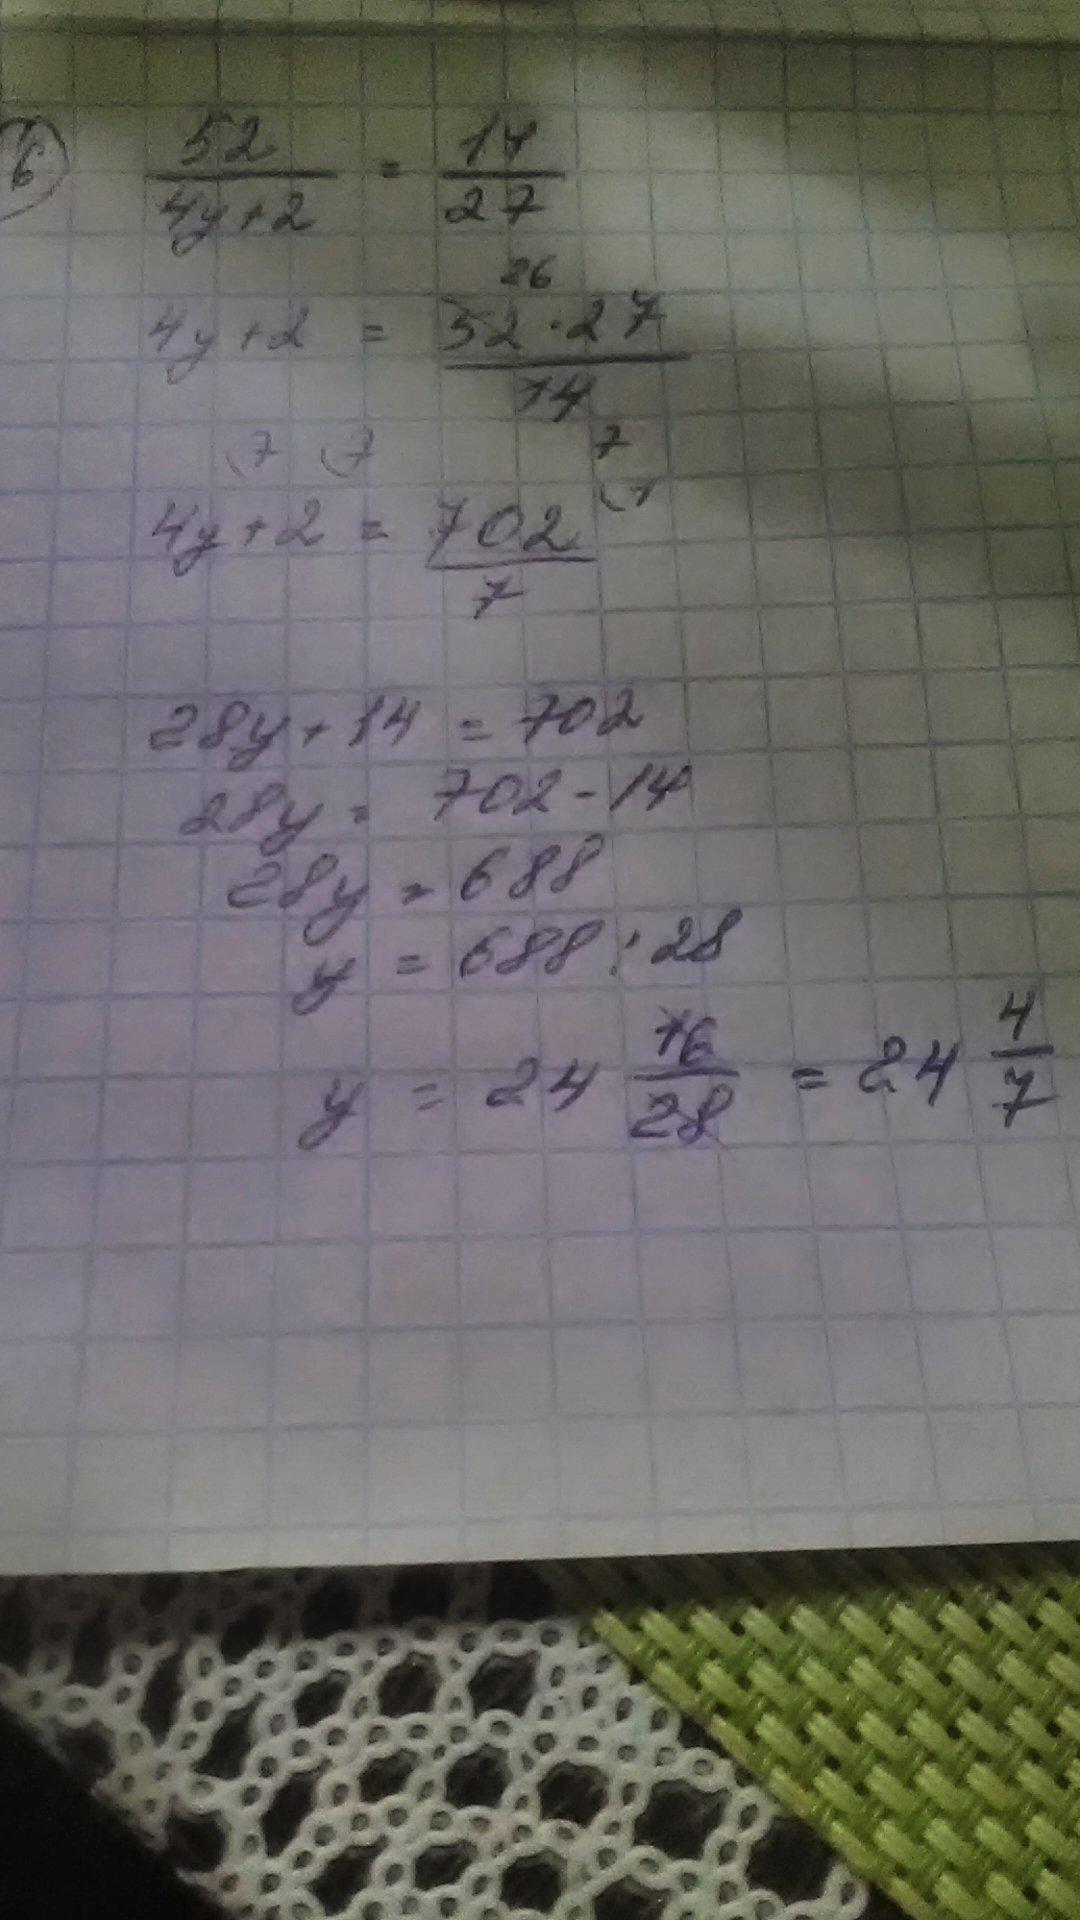 6) 52/(4y+2) = 14/27
26
4y+2 = 52·27/14
7
(7 (7 (1
4y+2 = 702/7
28y+14 = 702
28y = 702-14
28y = 688
y = 688:28
y = 24 16/28 = 24 4/7